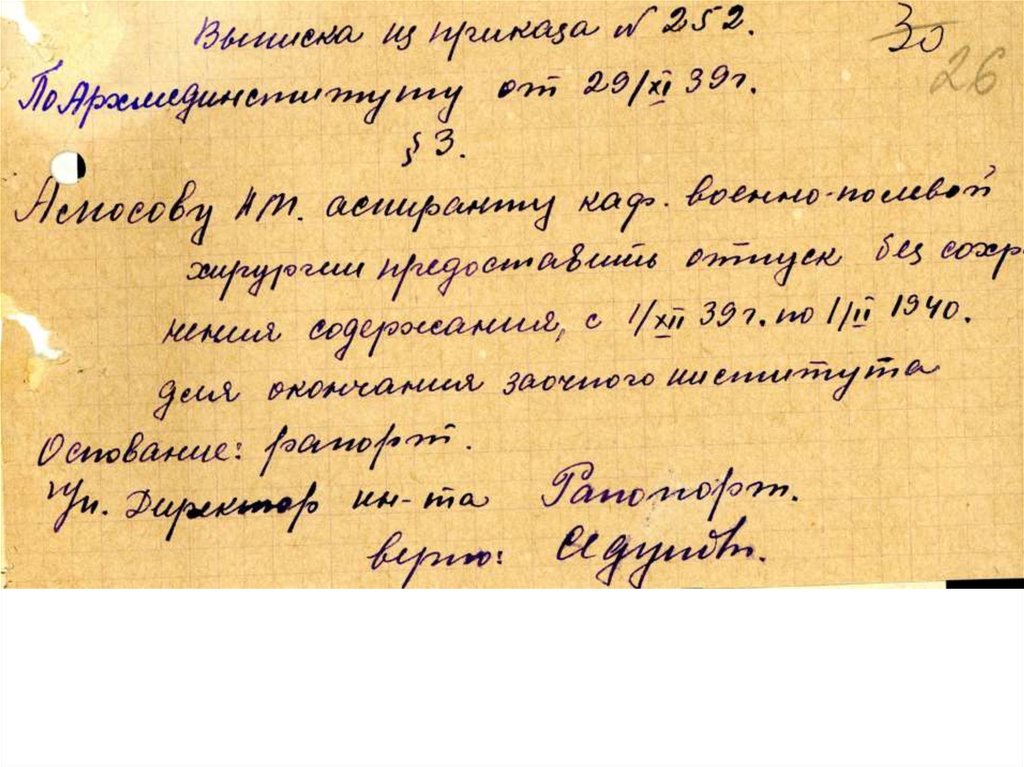 Выписка из приказа № 252.
30
26
По Архмединституту от 29/XI 39г.
§ 3.
Амосову Н.М. аспиранту каф. военно-полевой
хирургии предоставить отпуск без сохр
нения содержания, с 1/XII 39г. по 1/II 1940.
для окончания заочного института
Основание: рапорт.
Директор ин-та Рапопорт.
верно: